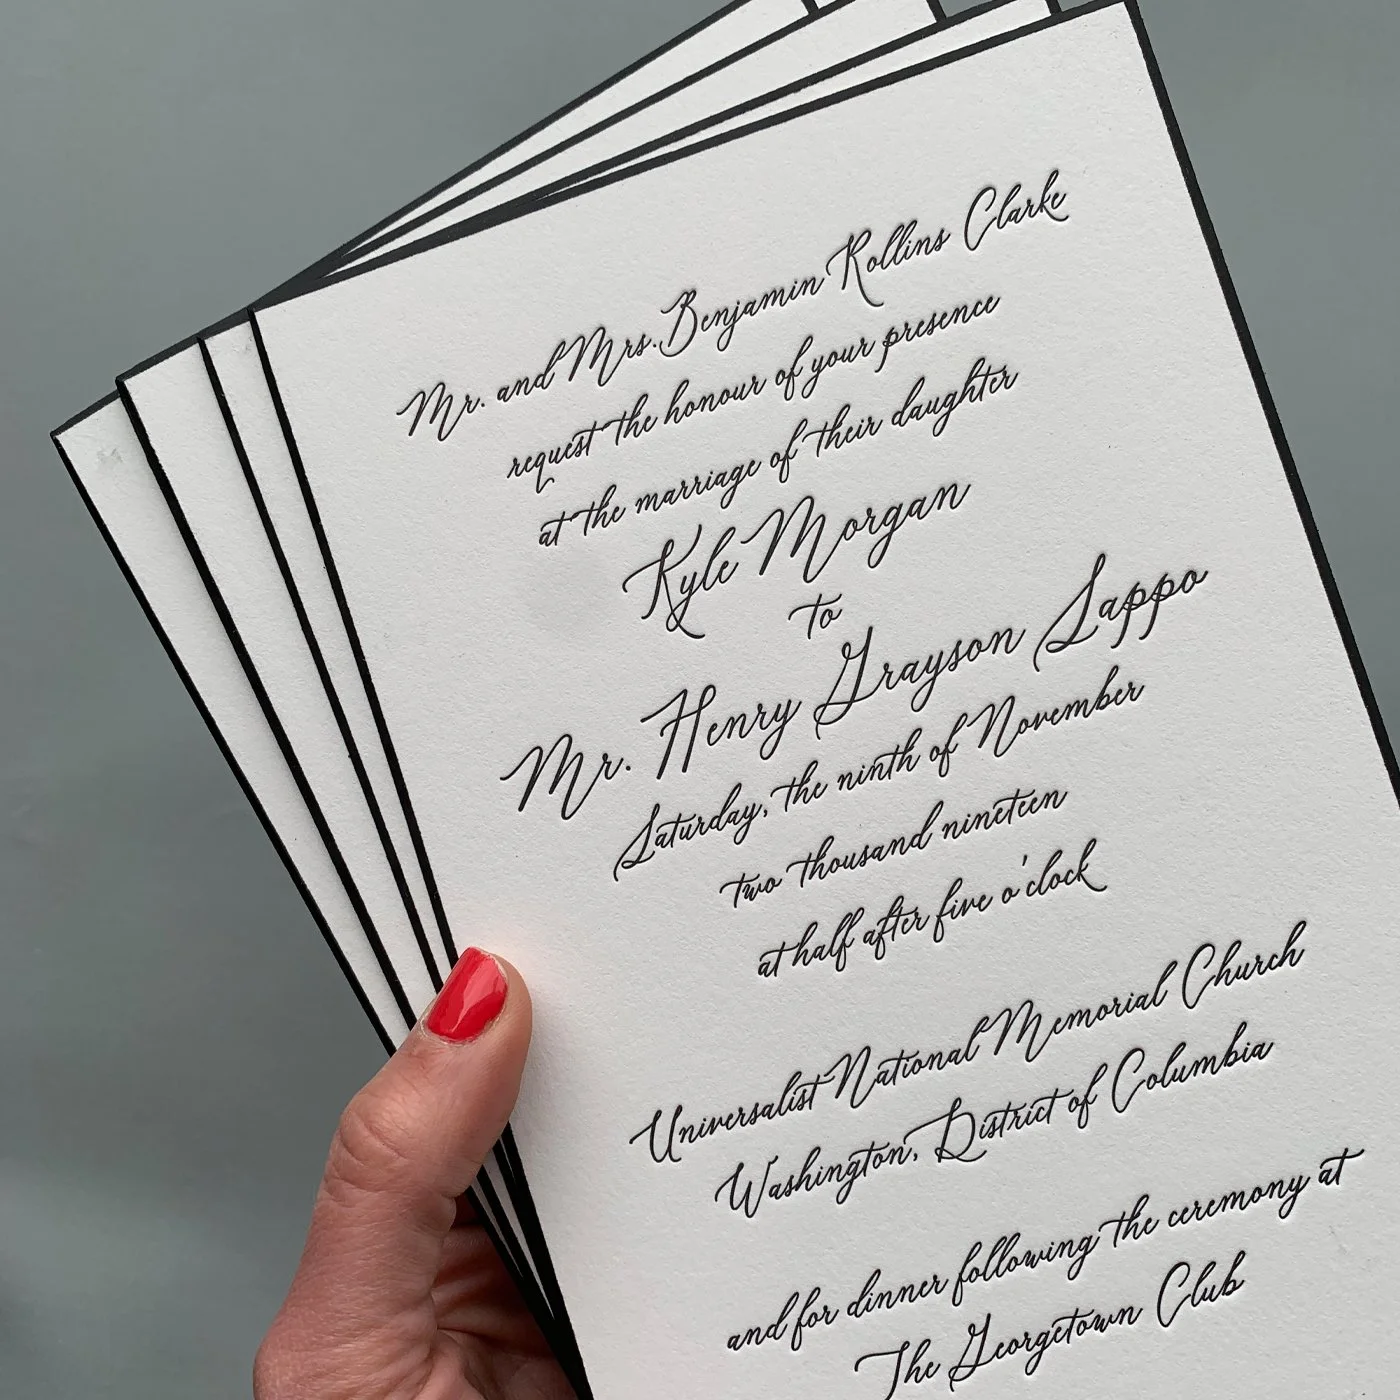 Mr. and Mrs. Benjamin Rollins Clarke
request the honour of your presence
at the marriage of their daughter
Kyle Morgan
to
Mr. Henry Grayson Sappo
Saturday, the ninth of November
two thousand nineteen
at half after five o'clock
Universalist National Memorial Church
Washington, District of Columbia
and for dinner following the ceremony at
The Georgetown Club